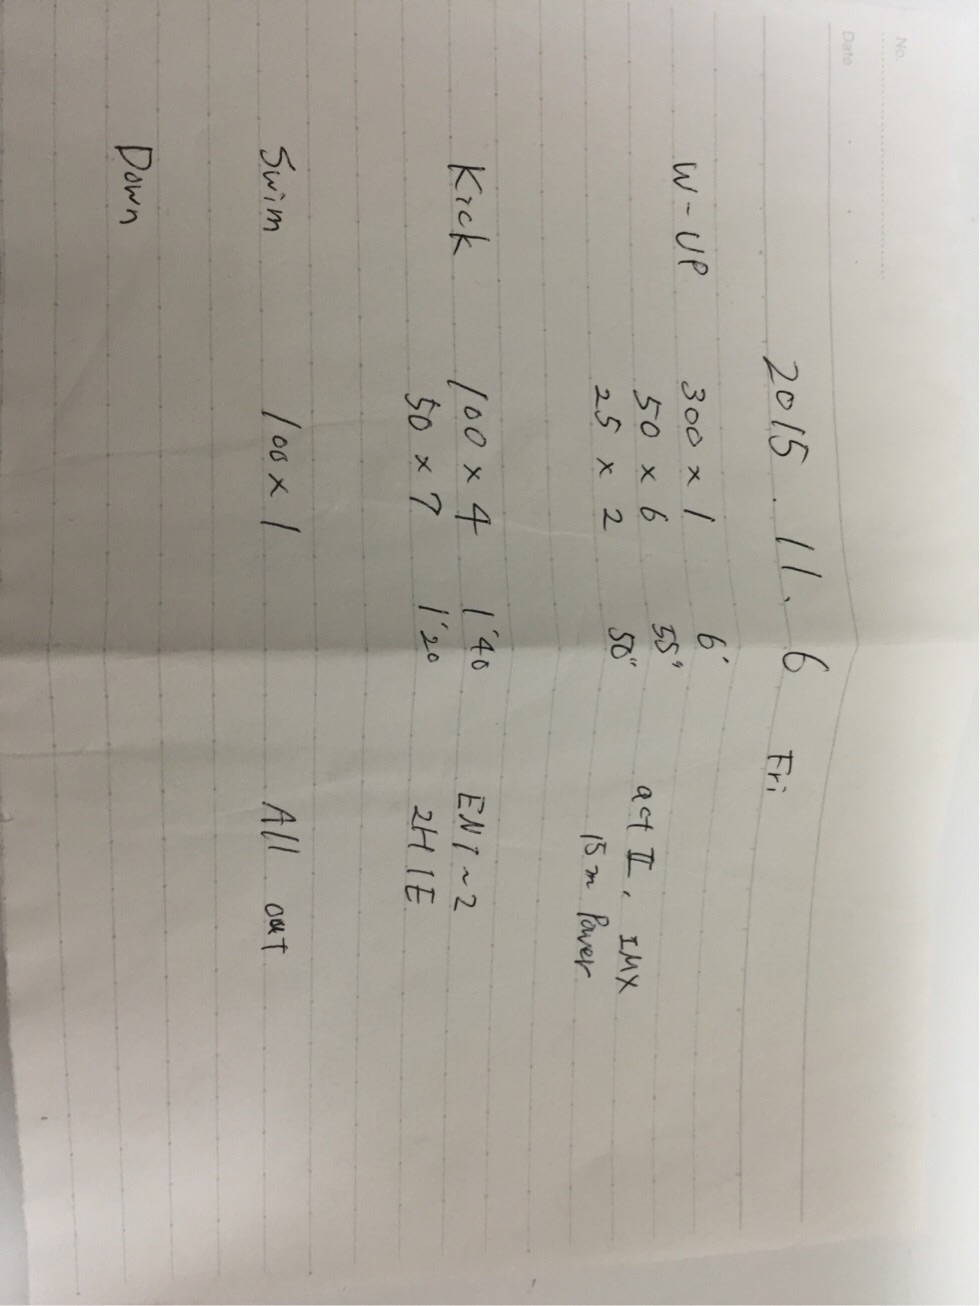 No.
Date
2015. 11. 6 Fri
W-UP 300 × 1 6'
50 × 6 55" act II, IMX
25 × 2 50" 15m Power
Kick 100 × 4 1'40 EN1~2
50 × 7 1'20 2H1E
Swim 100 × 1 All out
Down